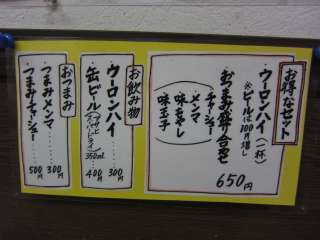 お得なセット
ウーロンハイ（一杯）
※ビールは100円増し
おつまみ盛り合わせ
チャーシュー
メンマ
味もやし
味玉子
650円
お飲み物
ウーロンハイ 300円
缶ビール（アサヒスーパードライ）350ml 400円
おつまみ
つまみメンマ 300円
つまみチャーシュー 500円